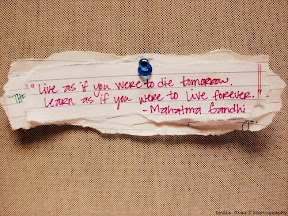 "Live as if you were to die tomorrow.
Learn as if you were to live forever."
- Mahatma Gandhi